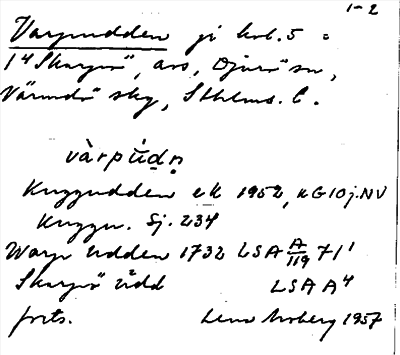 1-2
Varpudden på kbl. 5 =
1⁴ Skarpö, avs, Djurö sn,
Värmdö skg, Sthlms. l.
vàrpủ̀dn̥
Kuggudden ek 1952, KG10j.NV
Kuggu. Sj. 234
Warp Udden 1732 LSA A/119 71¹
Skarpö Udd LSA A⁴
forts. Lena Moberg 1957